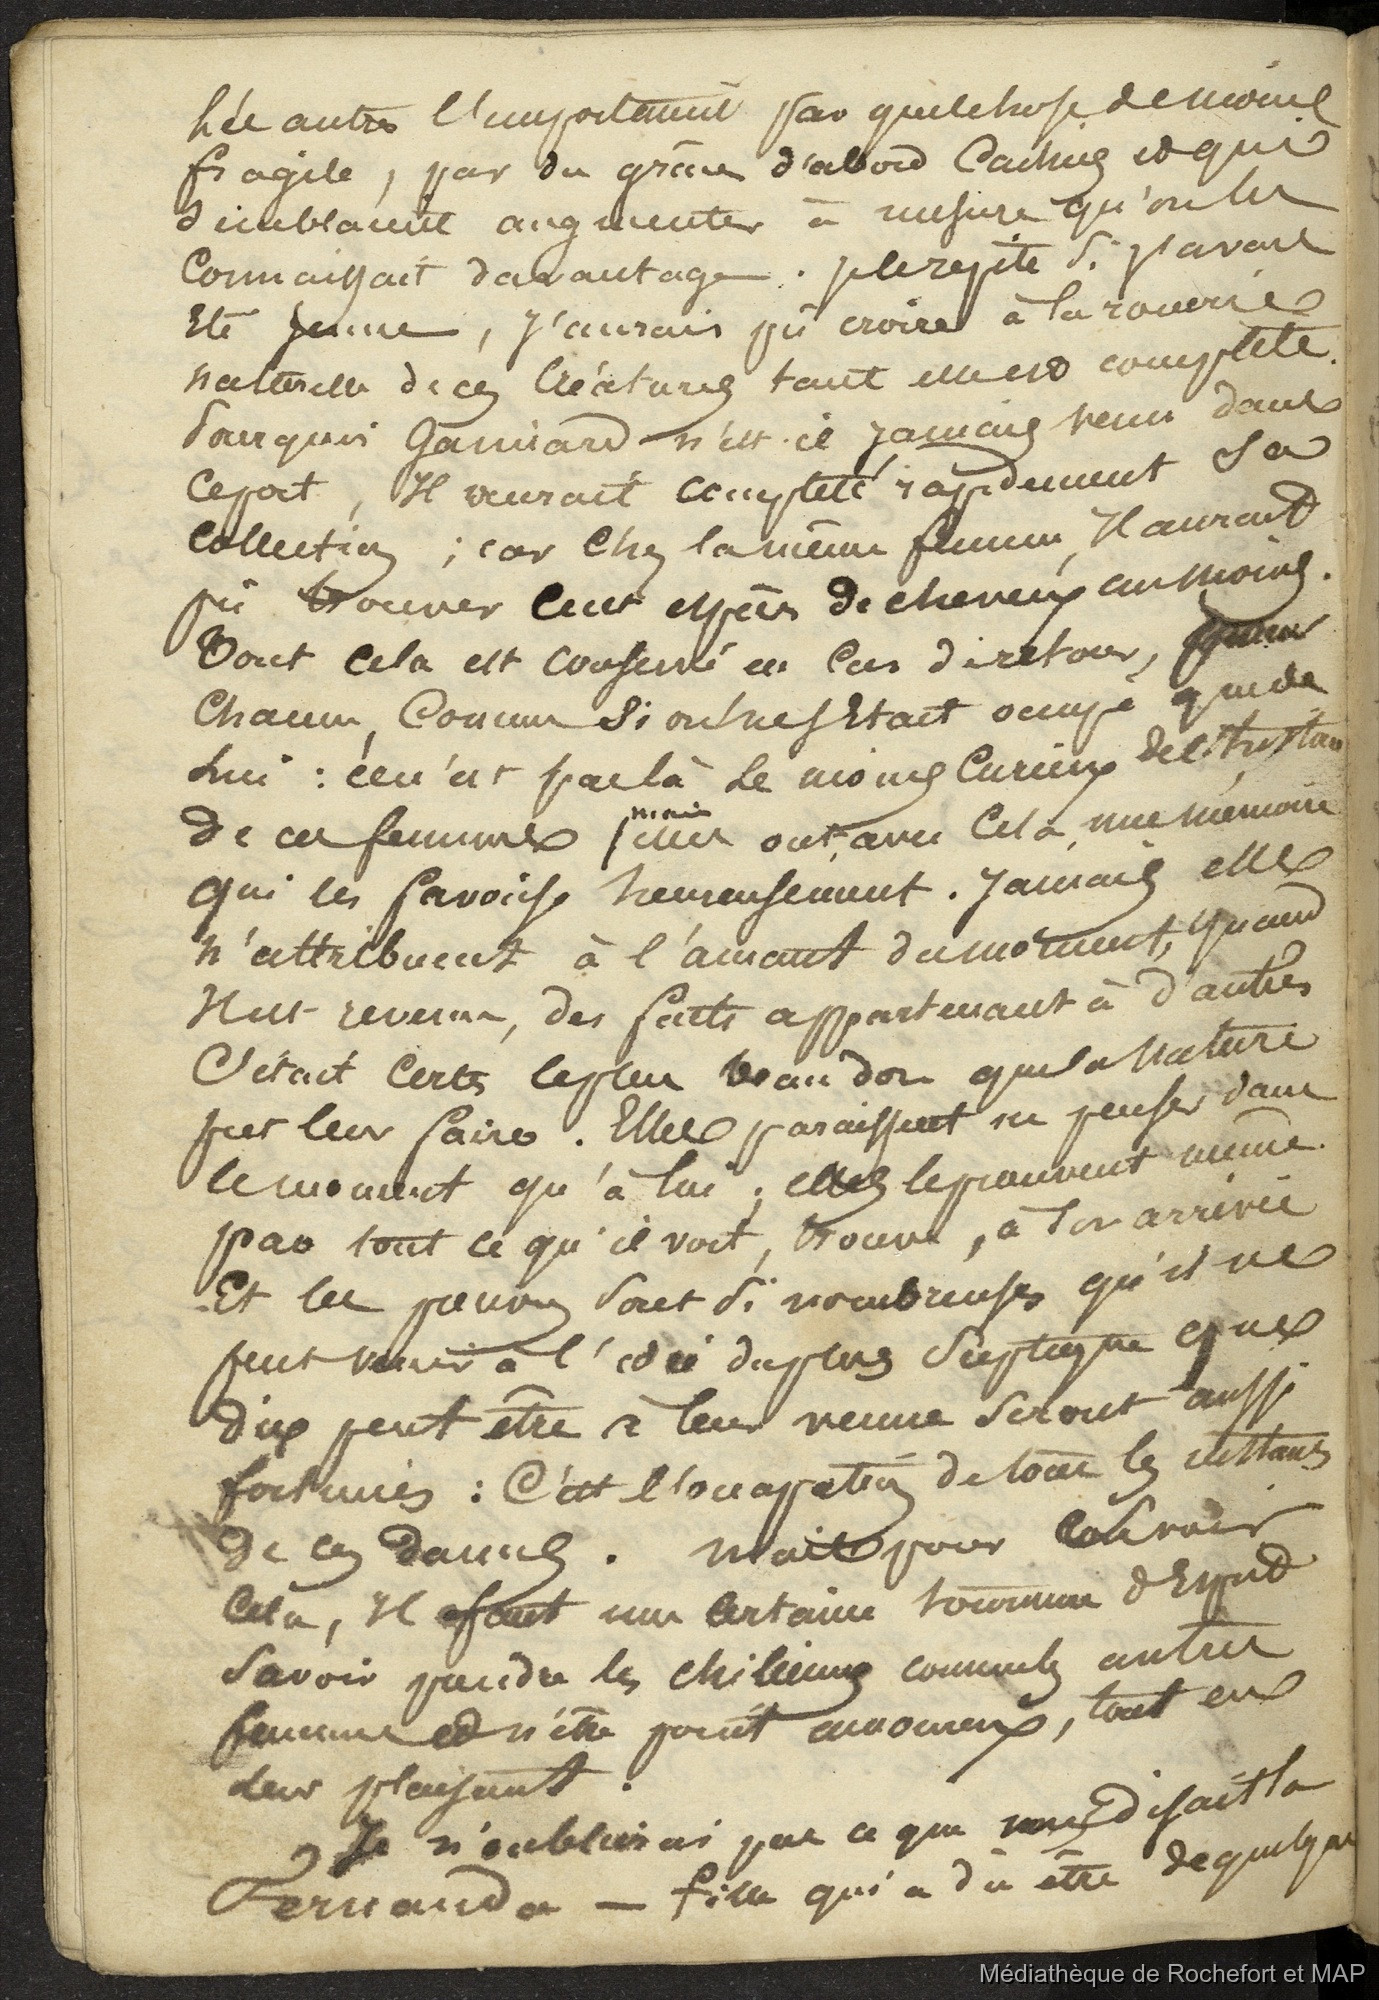 autres l'emportaient par quelchose de moins
fragile, par des grâces d'abord cachées et qui
semblaient augmenter à mesure qu'on les
connaissait davantage. je le repete si j'avais
été jeune, j'aurais pû croire à la rouerie
naturelle de ces créatures tant elle est complete.
Pourquoi n'est-il jamais venu dans
ce port, Il aurait completé rapidement sa
collection ; car chez la même femme, Il aurait
pû trouver cent espèces de cheveux au moins.
Tout cela est conservé en cas de retour, pour
chacun, comme si on ne s'était occupé que de
lui : ce n'est pas là le moins curieux de
de ces femmes mais elles ont avec cela, une mémoire
qui les favorise heureusement. Jamais elles
n'attribuent à l'amant du moment, quand
Il est revenu, des faits appartenant à d'autres
C'était certes le plus beau don que la nature
put leur faire. Elles paraissent ne penser dans
le moment qu'à lui ; elles le prouvent même
par tout ce qu'il voit, trouve, à son arrivée
Et les preuves sont si nombreuses qu'il ne
peut venir à l'idée du plus sceptique que
dix peut être à leur venue seront aussi
fortunés : C'est l'occupation de tous les instans
de ces dames. Mais pour
cela, Il faut une certaine tournure d'Esprit
savoir prendre les chiliennes comme les autres
femmes et n'être point amoureux, tout en
leur plaisant.
Je n'oublierai pas ce que nous disait la
Fernanda — fille qui a dû être de quelque
Médiathèque de Rochefort et MAP